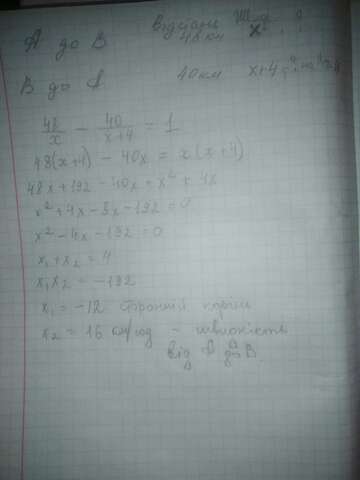 Відстань Шв.
А до В 48 км х ?
В до А 40км х+4
48/x - 40/x+4 = 1
48(x+4) - 40x = x(x+4)
48x+192 - 40x = x² + 4x
x²+4x-8x-192=0
x²-4x-192=0
x₁+x₂=4
x₁x₂=-192
x₁=-12 сторонній корінь
x₂=16 км/год - швидкість
від А до В